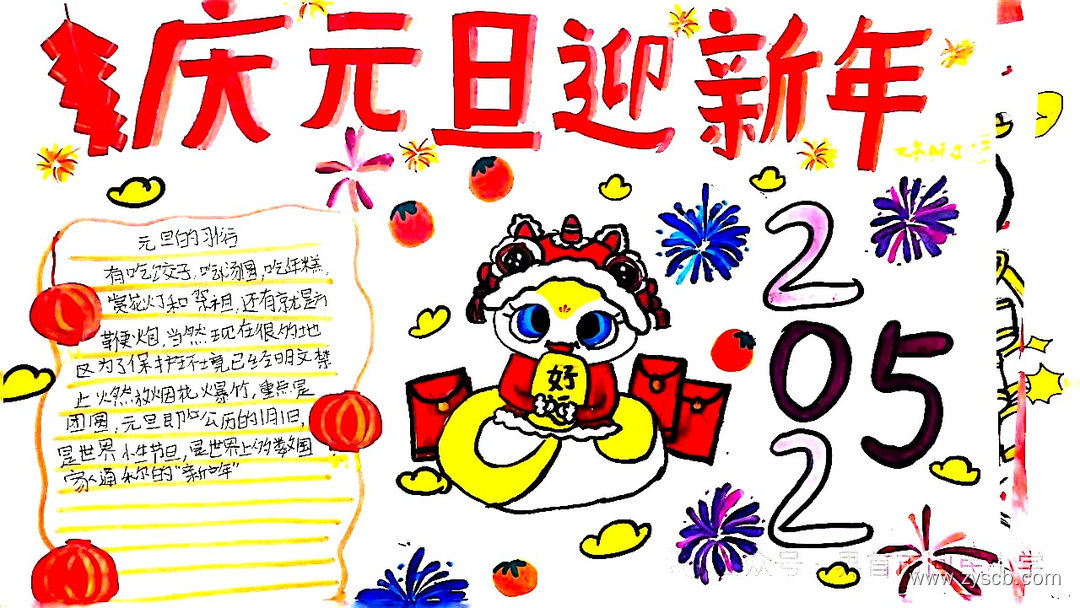 庆元旦迎新年
元旦的习俗
有吃饺子,吃汤圆,吃年糕,
赏花灯和祭祖,还有就是
鞭炮,当然现在很多地
区为了保护环境已经明文禁
止火然放烟花火暴竹,重点是
团圆,元旦即公历的1月1日,
是世界小生节旦,是世界上多数国
家通称的"新年"
好运
2
05
2
www.zyscb.com